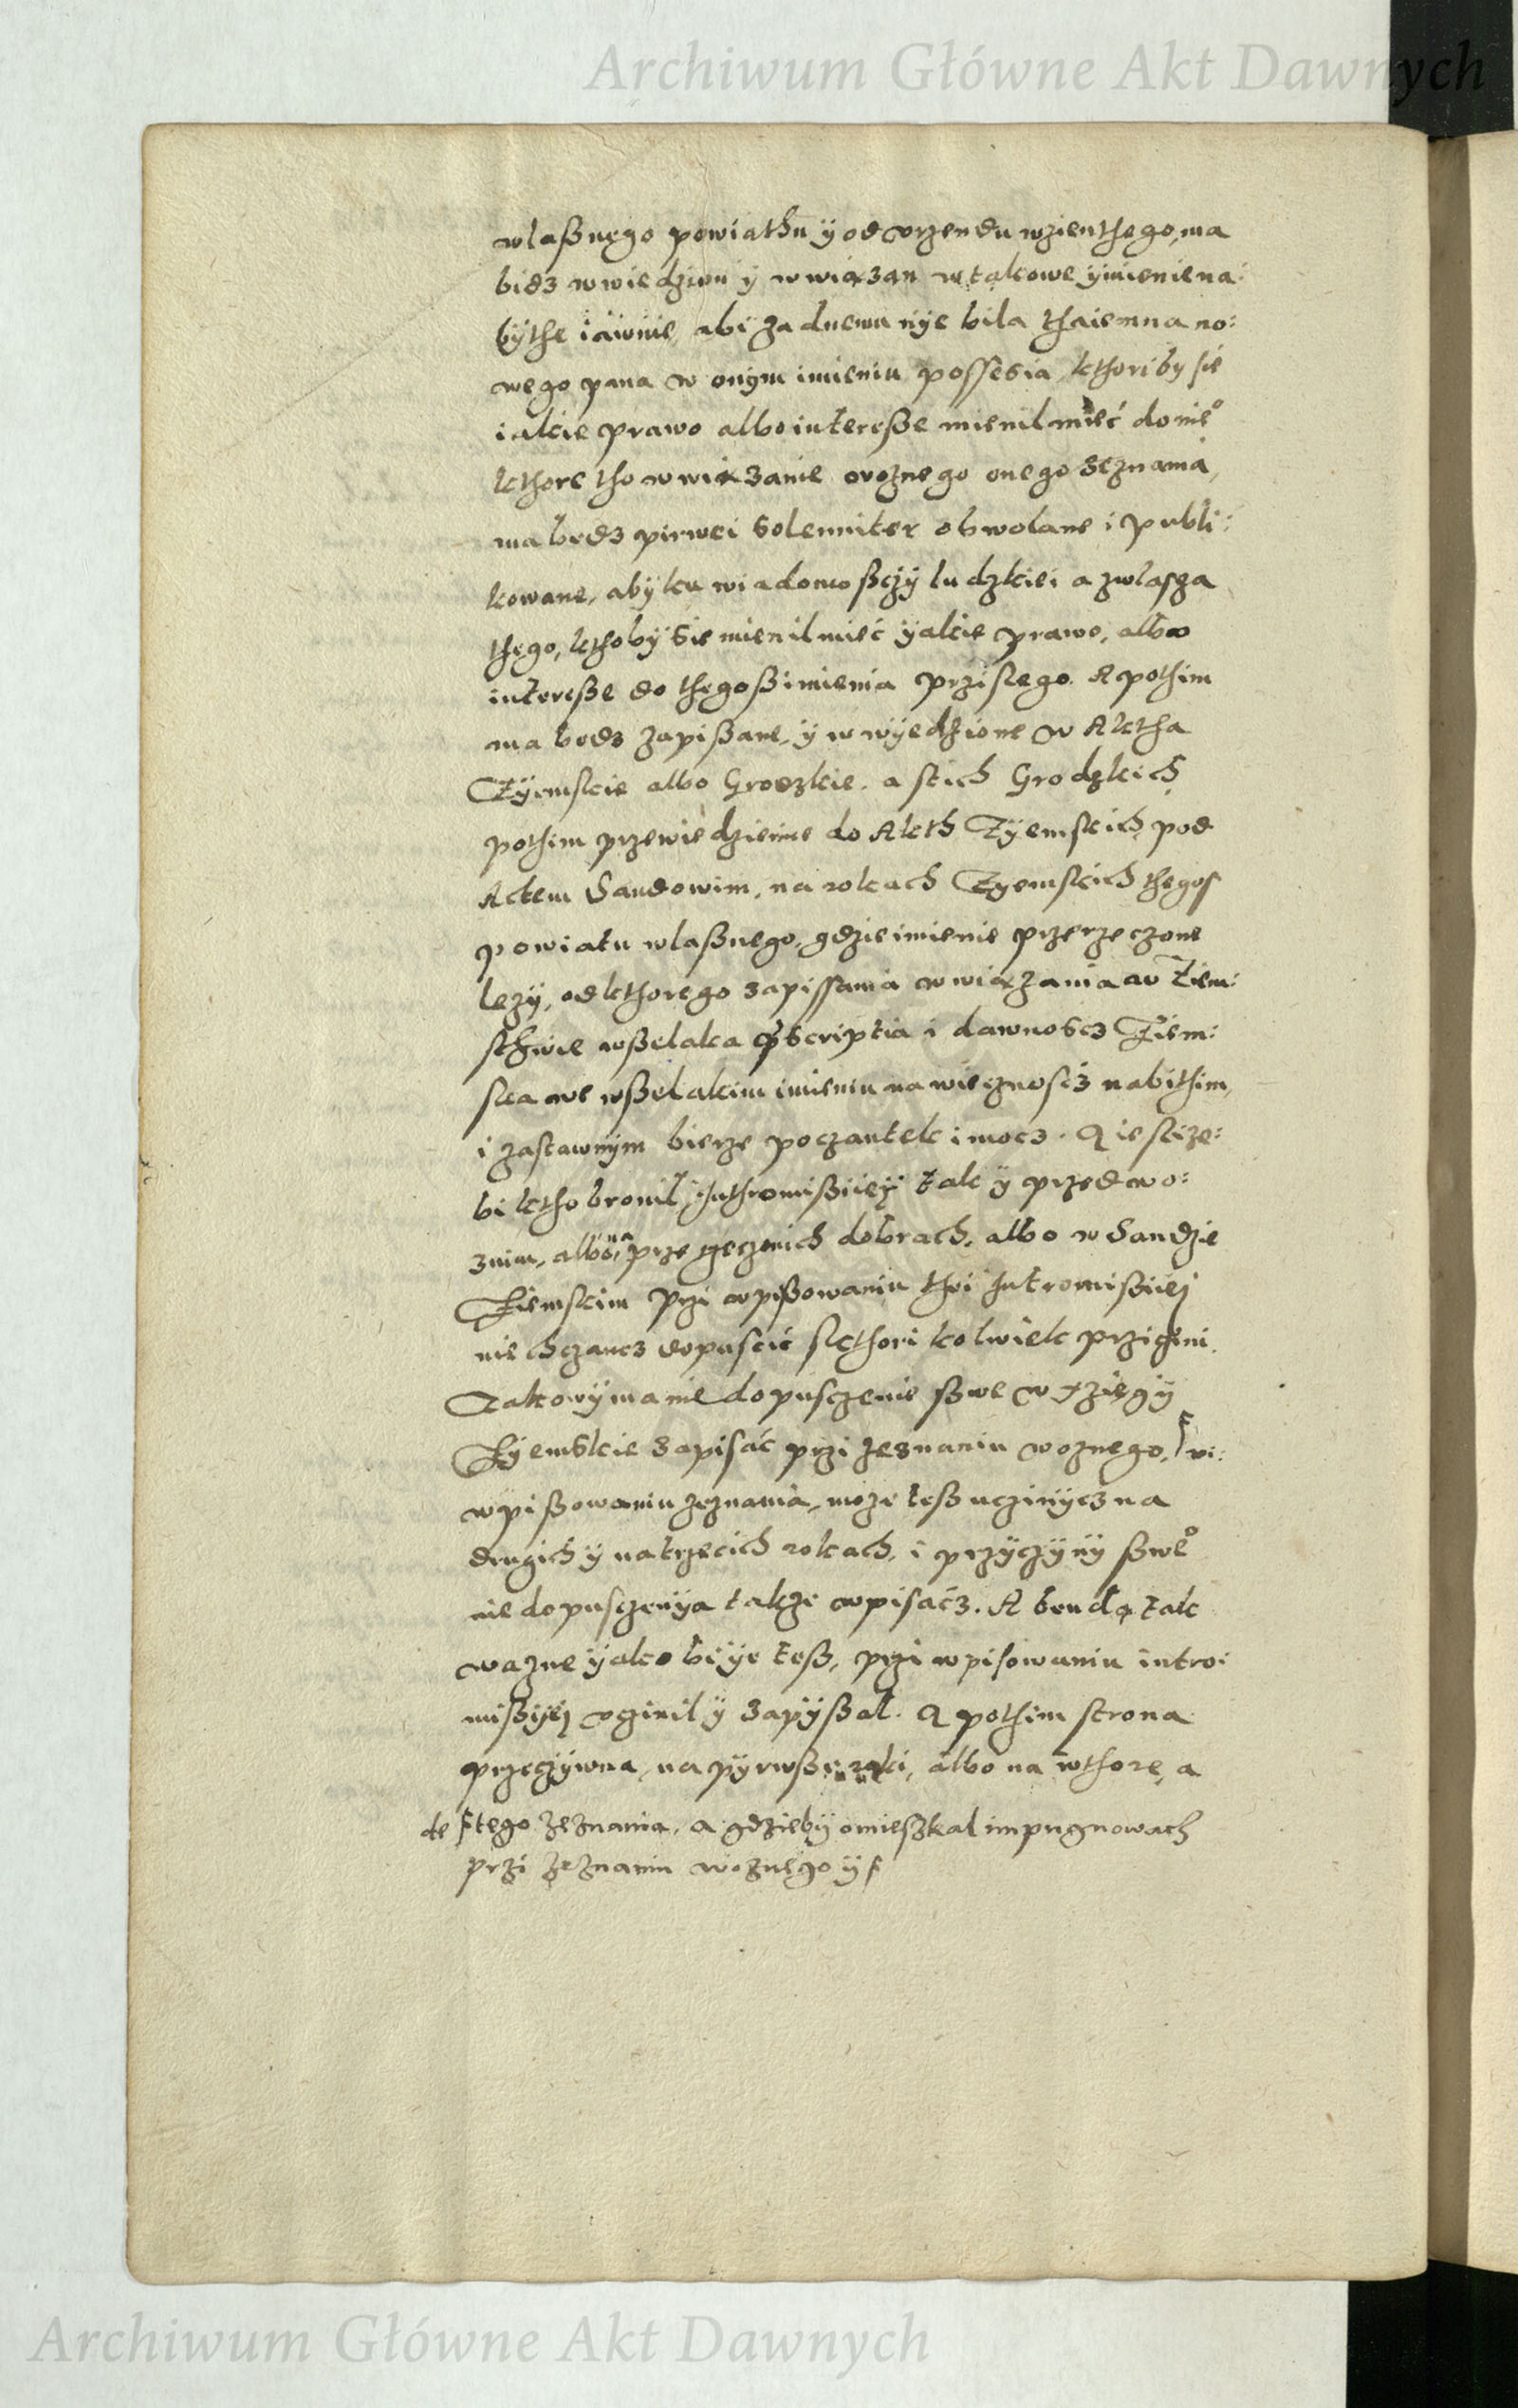 Archiwum Główne Akt Dawnych
wlaßnego powiathu ÿ od vrzendu wzienthego, ma
bidz wwiedzion ÿ wwiązan w takowe ÿmienie na:
bÿthe iawnie, abi zadnemu nÿe bila thaiemna no:
wego pana w onÿm imieniu possesia, kthoriby sie
iakie prawo albo interesße mienil mieć do nie°
kthore tho wwiązanie woznego onego zeznania,
ma bydz pirwei solenniter obwolane i publi:
kowane, abÿ ku wiadomosczÿ ludzkiei a zwlasza
thego, kthobÿ sie mienil mieć ÿakie prawo, albo
intereße do thegoß imienia przislego. A pothim
ma bydz zapißane, ÿ wwÿedzione w Aktha
Zÿemskie albo Grodzkie. a stich Grodzkich
pothim przewiedzienie do Akth Zÿemskich, pod
Actem Sandowim, na rokach Zyemskich thegos
powiatu wlaßnego, gdzie imienie przerzeczone
lezÿ, od kthorego zapissania wwiązania w Ziem:
sthwie wßelaka pscriptia i dawnoscz Ziem:
ska we wßelakim imieniu na wiecznoscz nabithim,
i zastawnÿm bierze poczantek i mocz. A iesliże:
bi ktho bronil Inthromißiieÿ tak ÿ przed wo:
znim, albo na przerzeczonich dobrach, albo w Sandzie
Ziemskim przi wpißowaniu thei Intromißiiej
nie chczancz dopuscić skthori kolwiek przicżini.
Takowÿ ma nie dopusczenie ßwe w xzięgÿ
Zÿemskie zapisać przi zeznaniu woznego, vi:
wpißowaniu zeznania, moze teß uczinÿcz na
drugich ÿ na trzecich rokach, i przÿczÿnÿ ßwe°
nie dopusczenÿa takze wpisacz. A bendą tak
wazne ÿako biÿe teß, przi wpisowaniu intro:
mißÿeÿ vcinil ÿ zapÿßal. A pothim strona
przeczÿwna, na pÿrwße roki, albo na wthore, a
de tego zeznania, a gdziebÿ omieszkal impugnowach
przi zeznaniu woznego ÿ
Archiwum Główne Akt Dawnych